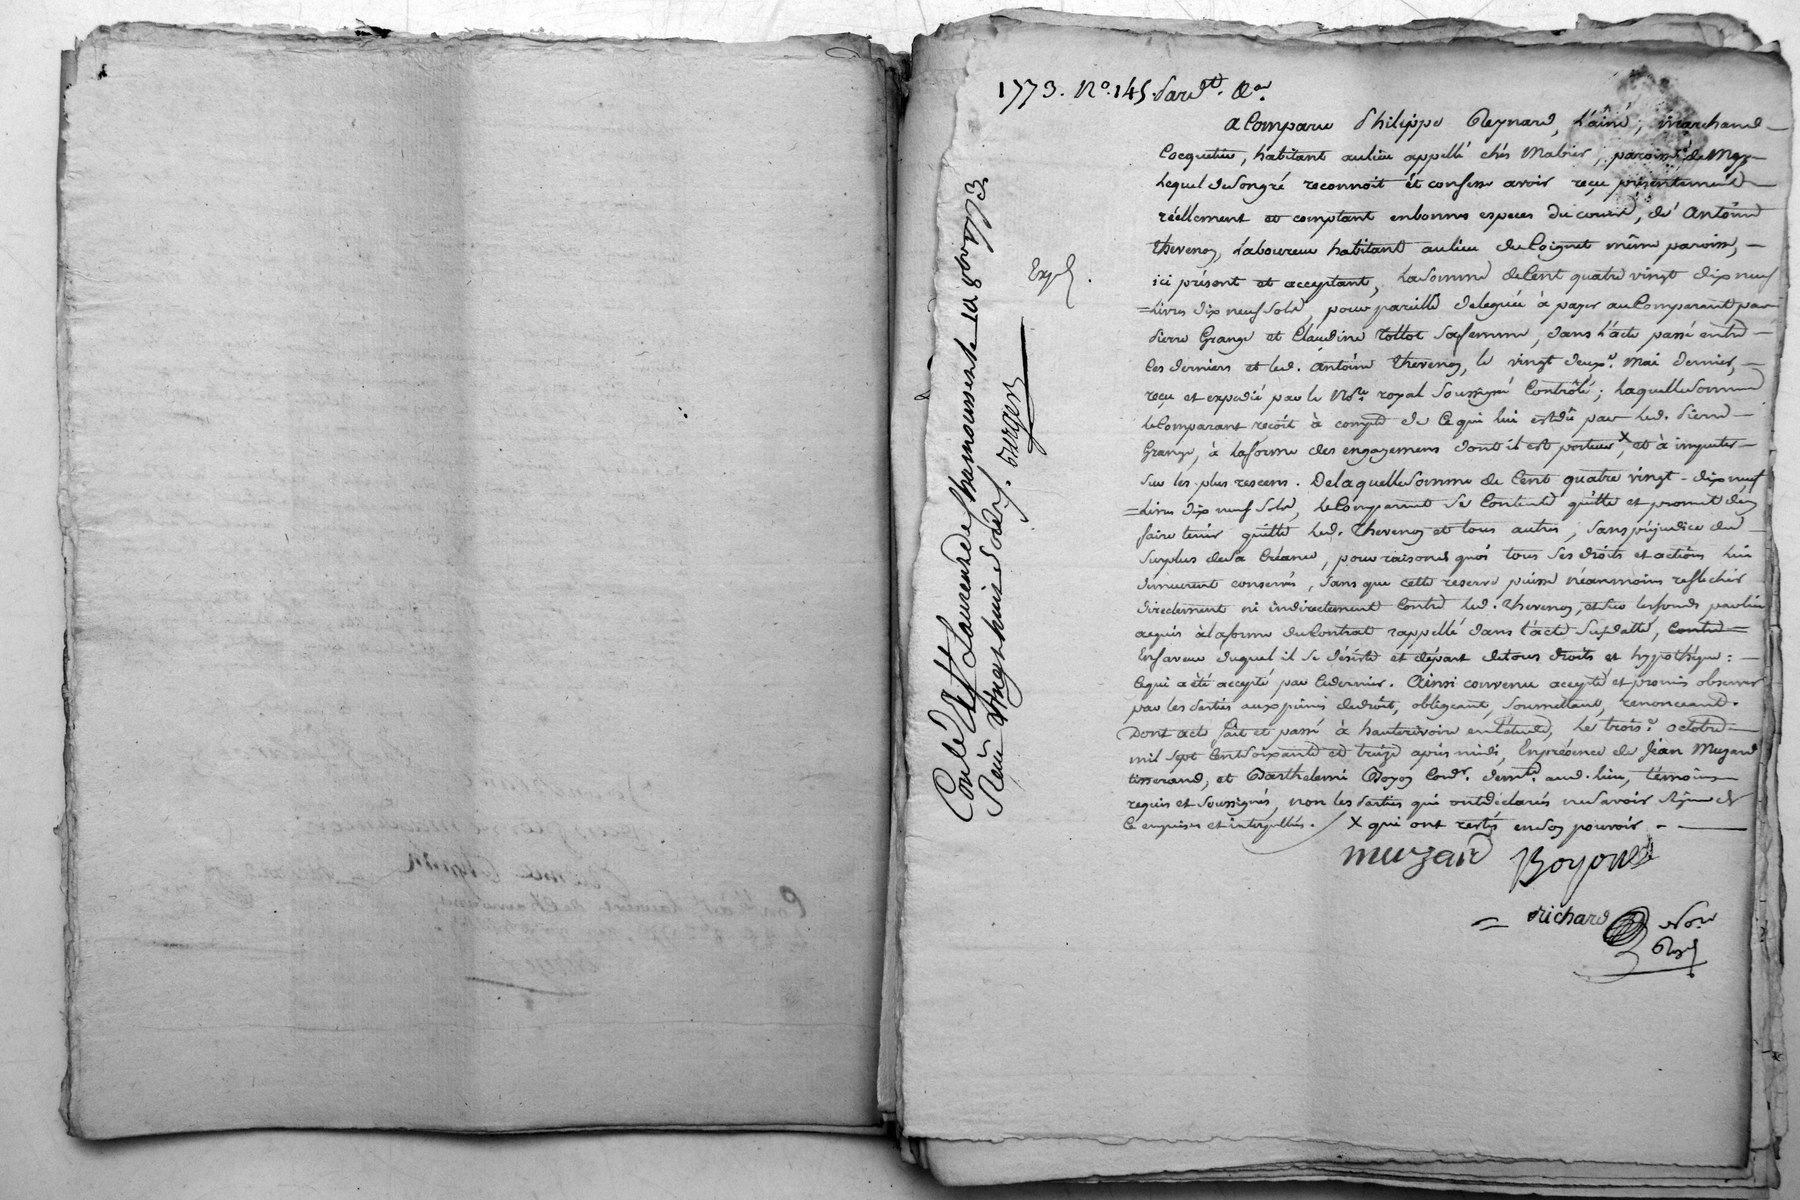 1773. No. 145. Pard.t &.a
A Comparu Philippe Reynard, L'ainé, marchand
Cocquetier, habitant au lieu appellé chés Mabier, paroisse de Meys
Lequel de son gré reconnoit et confesse avoir reçu présentement
réellement et comptant en bonnes especes du cours, de Antoine
Thevenon, Laboureur habitant au lieu du Coignet même paroisse,
ici présent et acceptant, La somme de Cent quatre vingt dix neuf
Livres dix neuf Sols, pour pareille deleguée à payer au Comparant par
Pierre Grange et Claudine Tollot sa femme, dans l'acte passé entre
Ces derniers et led. Antoine Thevenon, le vingt deux.e Mai dernier,
reçu et expedié par le No.re royal Soussigné Contrôlé; Laquelle Somme
le Comparant reçoit à compte de Ce qui lui est dû par led. Pierre
Grange, à la forme des engagemens dont il est porteur X, et à imputer
Sur les plus rescens. De laquelle Somme de Cent quatre vingt-dix neuf
Livres dix neuf Sols, le Comparant Se Contente quitte et promet d'en
faire tenir quitte led. Thevenon et tous autres, sans préjudice du
Surplus de Sa Créance, pour raison de quoi tous Ses droits et actions lui
demeurent conservés, Sans que cette reserve puisse néanmoins reflechir
directement ni indirectement Contre led. Thevenon, et Sur les fonds par lui
acquis à la forme du Contrat rappellé dans l'acte Susdatté, Contre
En faveur duquel il Se désiste et départ de tous droits et hypothèque:
Ce qui a été accepté par Ce dernier. Ainsi convenu accepté et promis observer
par les Parties aux peines de droit, obligeant, Soumettant, renonceant.
Dont acte fait et passé à hauterivoire en l'étude, Le trois.e octobre
mil Sept Cent Soixante et treize après midi, En présence de Jean Muzard
tisserand, et Barthelemi Boyon Cord.r demt. aud. lieu, témoins
requis et Soussignés, non les Parties qui ont déclarés ne Savoir Signer de
Ce enquises et interpellés. X qui ont restés en son pouvoir.
muzard Boyon
richard No.re
Roy.l
Exp.é
Con.lé à S.t Laurent de Chamousset le 10 8bre 1773.
Reçu Vingt huit Sols